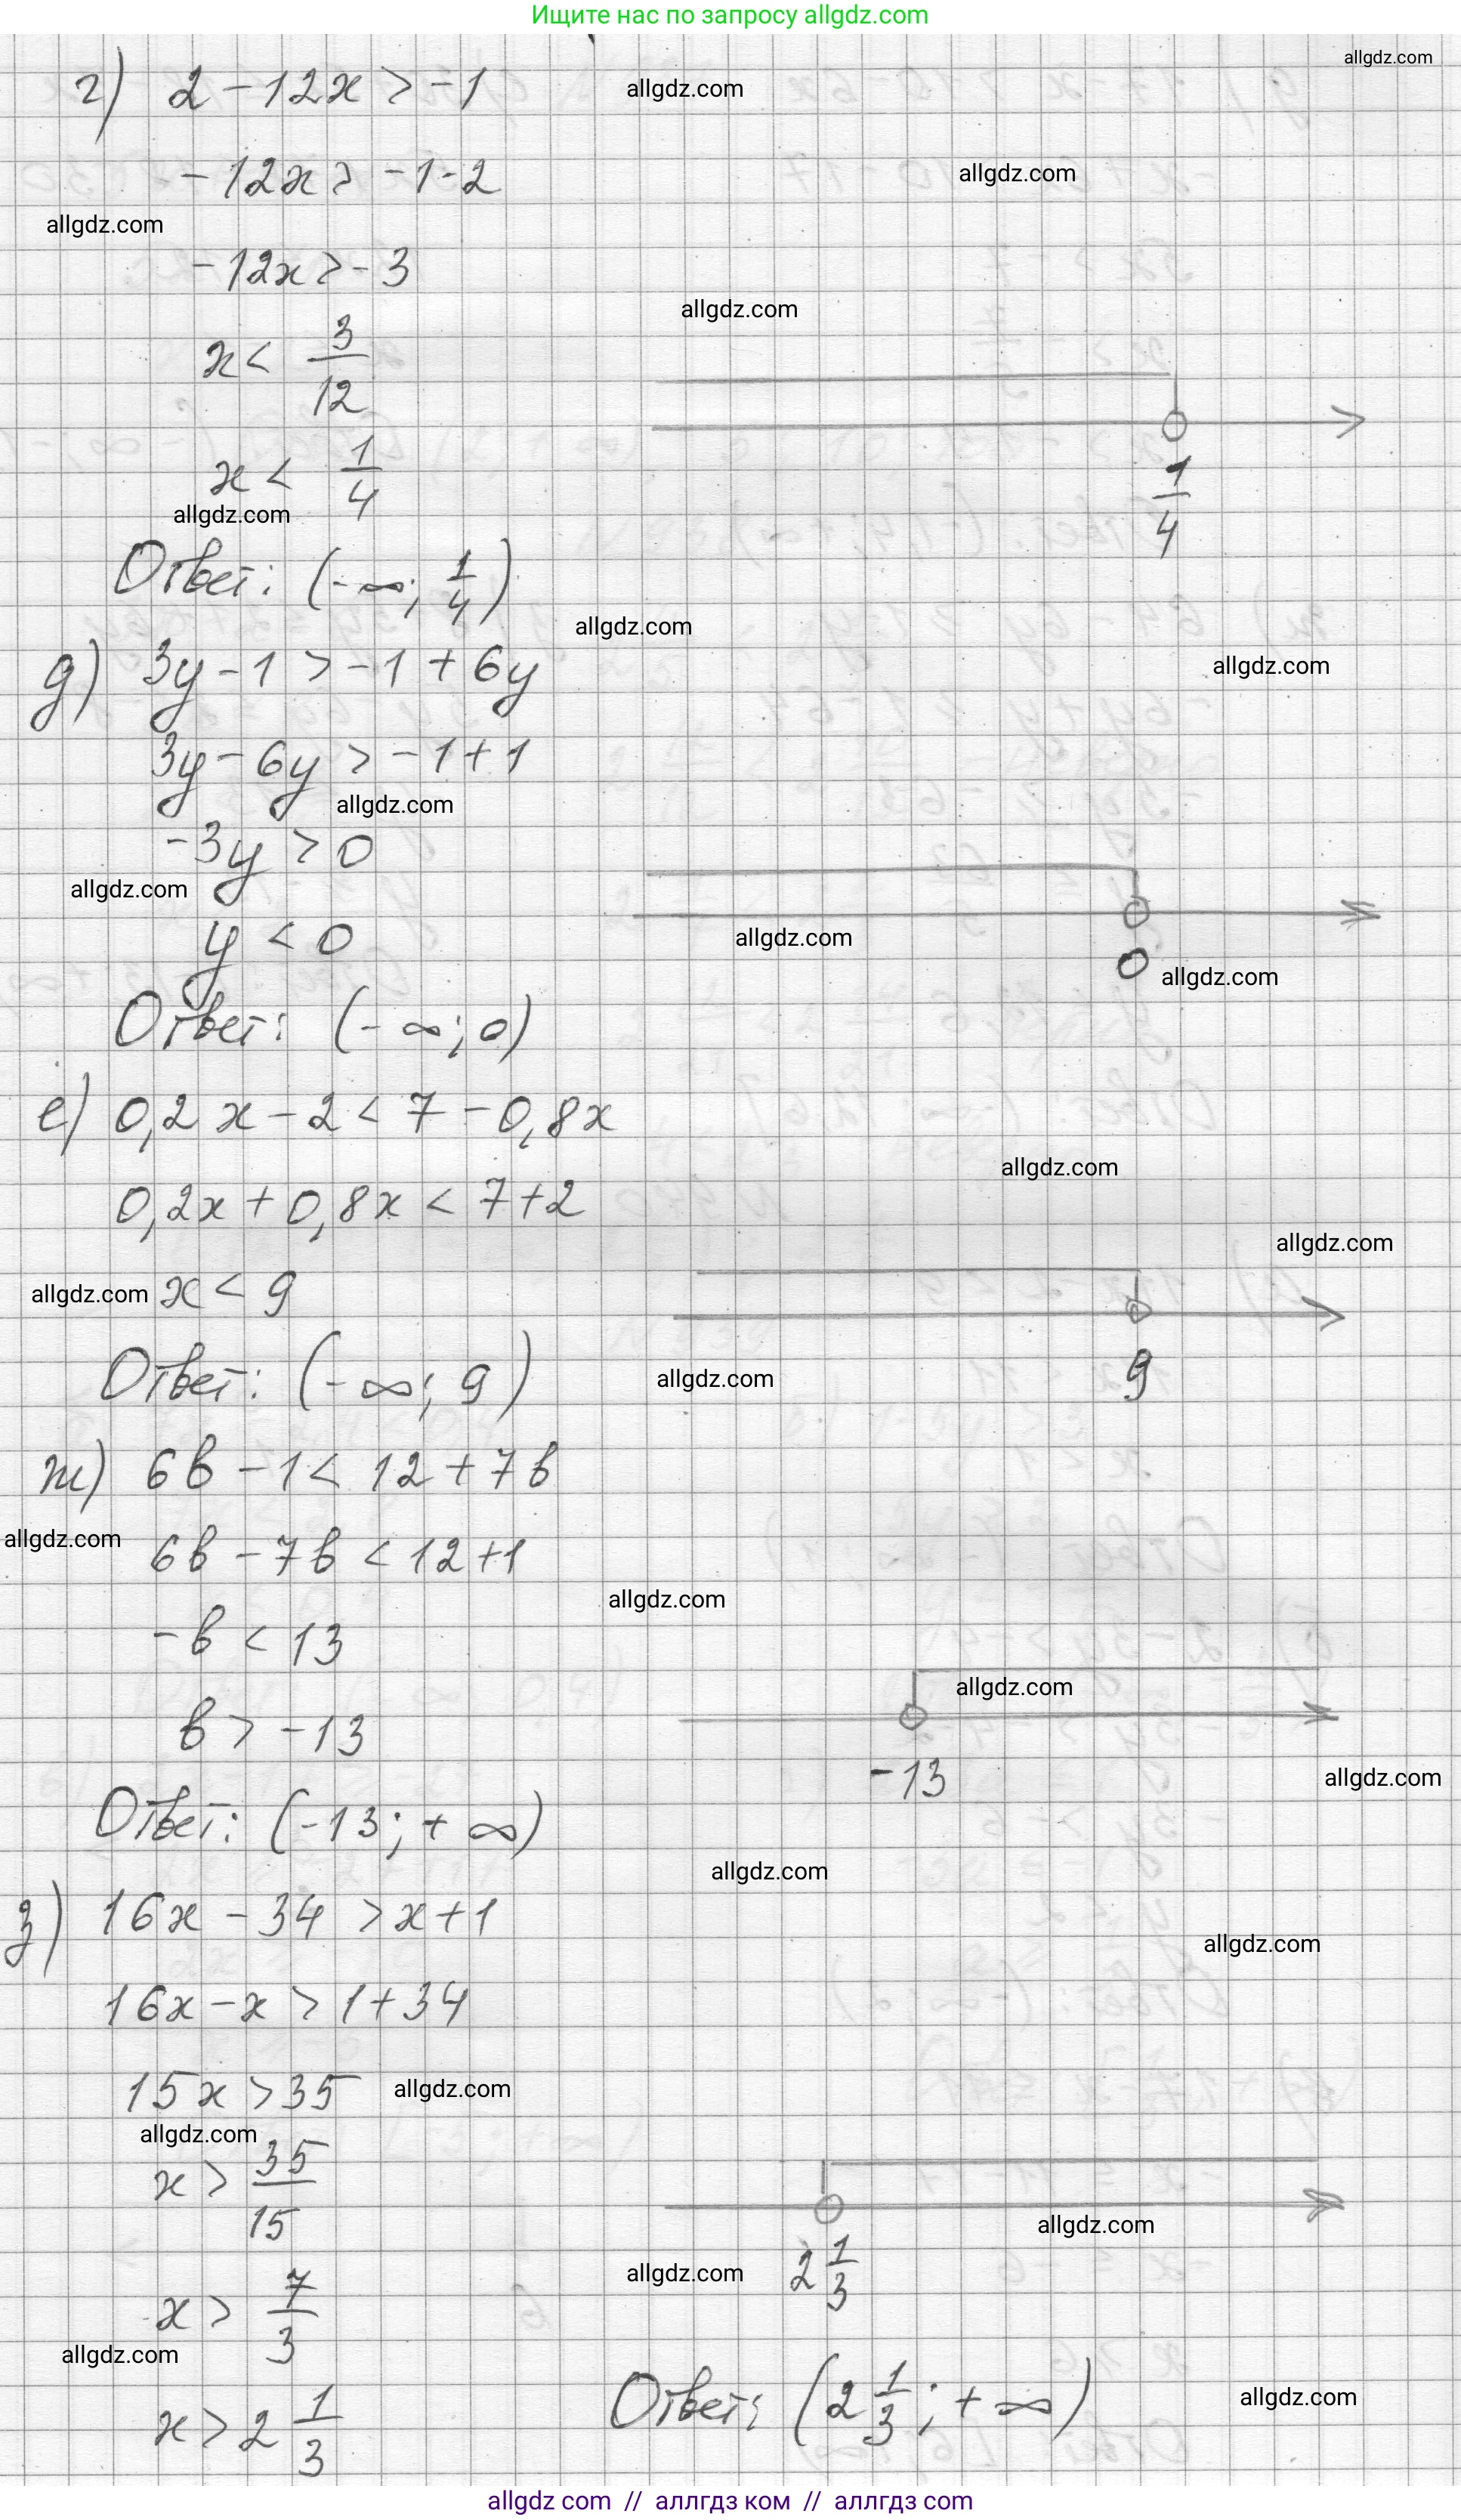 Ищите нас по запросу allgdz.com
allgdz.com
г) 2 - 12x > -1
allgdz.com
-12x > -1-2
allgdz.com
allgdz.com
-12x > -3
allgdz.com
x < 3/12
x < 1/4
1/4
allgdz.com
Ответ: (-∞; 1/4)
allgdz.com
д) 3y - 1 > -1 + 6y
allgdz.com
3y - 6y > -1 + 1
allgdz.com
-3y > 0
allgdz.com
y < 0
allgdz.com
0
allgdz.com
Ответ: (-∞; 0)
е) 0,2x - 2 < 7 - 0,8x
allgdz.com
0,2x + 0,8x < 7+2
allgdz.com
allgdz.com
x < 9
9
Ответ: (-∞; 9)
allgdz.com
ж) 6b - 1 < 12 + 7b
allgdz.com
6b - 7b < 12+1
allgdz.com
-b < 13
allgdz.com
b > -13
-13
allgdz.com
Ответ: (-13; +∞)
allgdz.com
з) 16x - 34 > x+1
allgdz.com
16x - x > 1+34
15x > 35
allgdz.com
allgdz.com
x > 35/15
allgdz.com
allgdz.com
2 1/3
x > 7/3
allgdz.com
x > 2 1/3
Ответ: (2 1/3; +∞)
allgdz.com
allgdz com // аллгдз ком // аллгдз com